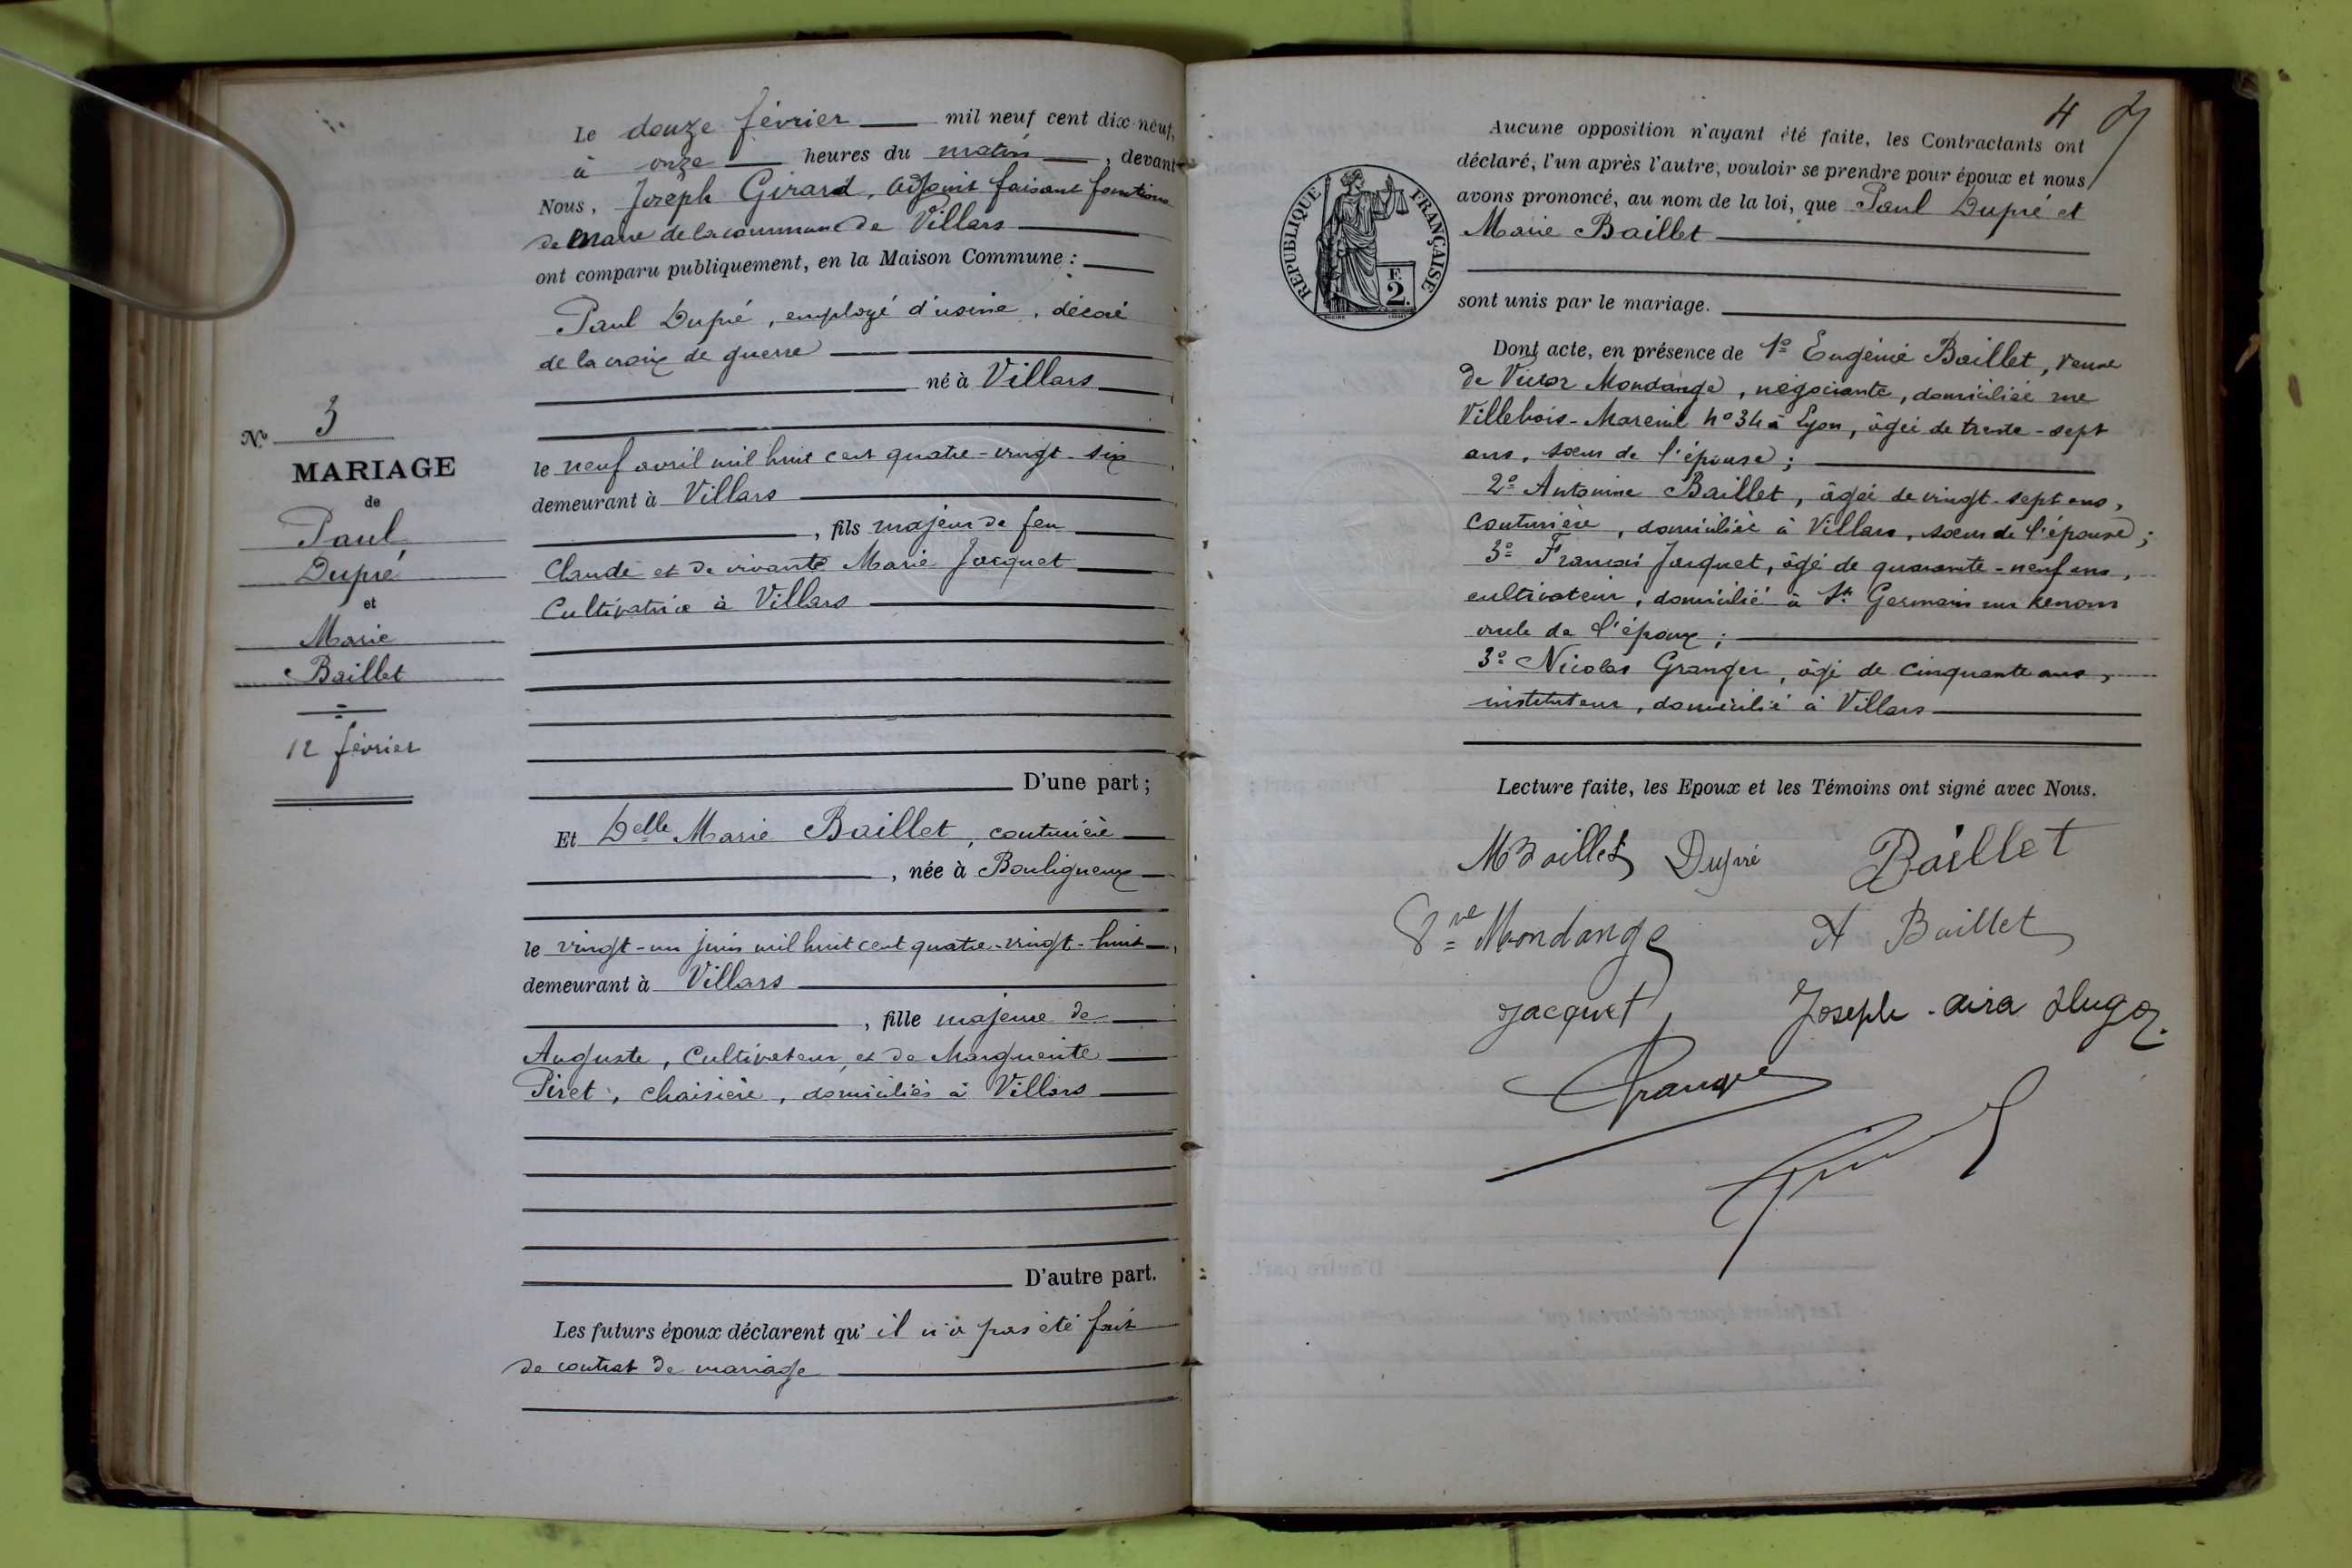 N° 3
MARIAGE
de
Paul
Dupré
et
Marie
Baillet
12 février
Le douze février mil neuf cent dix-neuf,
à onze heures du matin, devant
Nous, Joseph Girard, adjoint faisant fonctions
de Maire de la commune de Villars
ont comparu publiquement, en la Maison Commune :
Paul Dupré, employé d'usine, décoré
de la croix de guerre
né à Villars
le neuf avril mil huit cent quatre-vingt-six
demeurant à Villars
, fils majeur de feu
Claude et de vivante Marie Jacquet
Cultivatrice à Villars
D'une part ;
Et Delle Marie Baillet, couturière
, née à Bouligneux
le vingt-un juin mil huit cent quatre-vingt-huit,
demeurant à Villars
, fille majeure de
Auguste, Cultivateur, et de Marguerite
Piret, chaisière, domiciliés à Villars
D'autre part.
Les futurs époux déclarent qu' il n'a pas été fait
de contrat de mariage
4
RÉPUBLIQUE FRANÇAISE
F.
2.
Aucune opposition n'ayant été faite, les Contractants ont
déclaré, l'un après l'autre, vouloir se prendre pour époux et nous
avons prononcé, au nom de la loi, que Paul Dupré et
Marie Baillet
sont unis par le mariage.
Dont acte, en présence de 1° Eugénie Baillet, veuve
de Victor Mondange, négociante, domiciliée rue
Villebois-Mareuil n° 34 à Lyon, âgée de trente-sept
ans, soeur de l'épouse ;
2° Antonine Baillet, âgée de vingt-sept ans,
couturière, domiciliée à Villars, soeur de l'épouse ;
3° Francois Jacquet, âgé de quarante-neuf ans,
cultivateur, domicilié à St Germain sur Renom
oncle de l'époux ;
3° Nicolas Granger, âgé de cinquante ans,
instituteur, domicilié à Villars
Lecture faite, les Epoux et les Témoins ont signé avec Nous.
M Baillet Dupré Baillet
Vve Mondange A Baillet
Jacquet Joseph